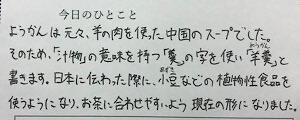 今日のひとこと
ようかんは元々、羊の肉を使った中国のスープでした。
そのため、「汁物」の意味を持つ「羹」の字を使い「羊羹」と
ようかん
書きます。日本に伝わった際に、小豆などの植物性食品を
あずき
使うようになり、お茶に合わせやすいよう現在の形になりました。